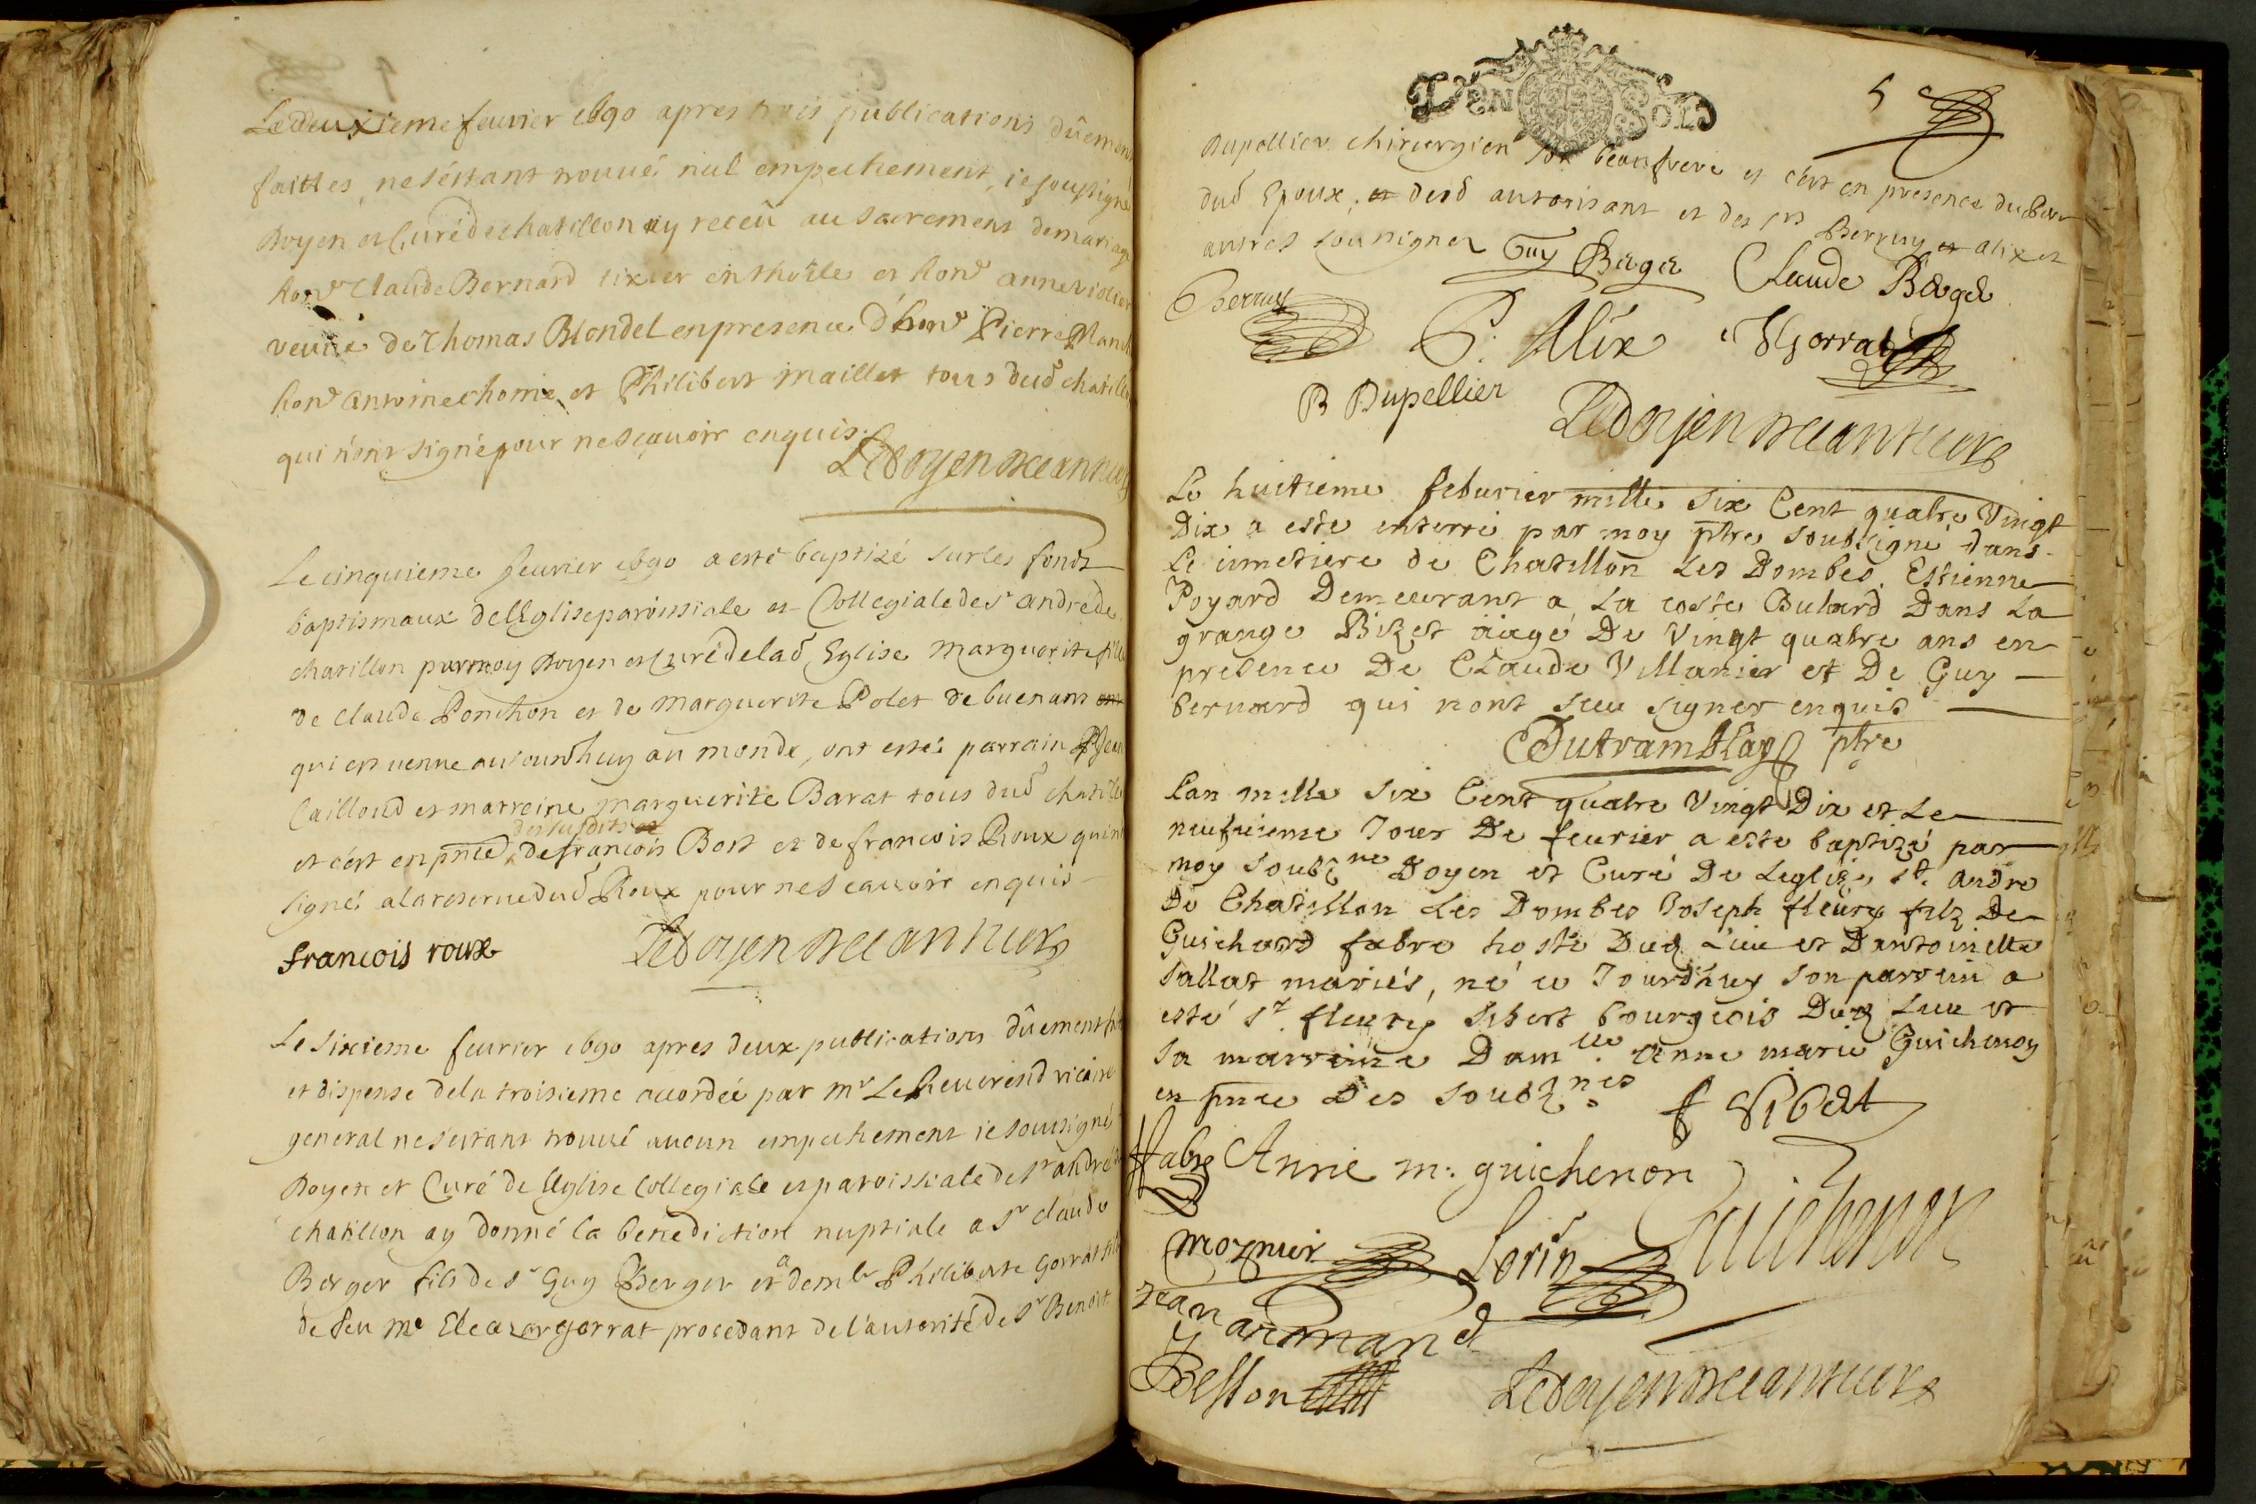 Le deuxieme feurier 1690 apres trois publications dûement
faittes, ne s'estant trouué nul empechement, ie soussigné
Doyen et Curé de chatillon ay receü au sacrement de mariage
hon^e Claude Bernard tixier en thoile et hon^e anne
veuue de Thomas Blondel en presence d'hon^e Pierre
hon^e antoine chorrie et Philibert maillet tous dud chatillon
qui n'ont signé pour ne sçauoir enquis.
Ledoyen
Le cinquieme feurier 1690 a esté baptizé sur les fonds
baptismaux de l'Eglise paroissiale et Collegiale de s^t andré de
chatillon par moy Doyen et Curé de lad Eglise marguerite fille
de claude Ponchon et de marguerite Polet de buenans
qui est venue au iourdhuy au monde, ont estés parrain Jean
Cailloud et marreine marguerite Barat tous dud chatillon
et c'est en pnce desusdits de françois Bost et de francois Roux qui ont
signé a la reserue dud Roux pour ne scauoir enquis
francois roux Ledoyen
Le sixieme feurier 1690 apres deux publications dûement
et dispense de la troisieme accordée par m^r Le Reuerend vicaire
general ne s'estant trouué aucun empechement ie soussigné
Doyen et Curé de l'Eglise Collegiale et paroissiale de s^t andré
chatillon ay donné la benediction nuptiale a s^r claude
Berger fils de s^r Guy Berger et a dem^lle Philiberte Gorrat
de feu m^e Eleazar gorrat procedant de l'autorité de s^r Benoit
5
Dupellier chirurgien son beaufrere et c'est en presence du
dud Epoux, et dud autorisant et des srs Berruy et alix et
autres sousignez Guy Berger Claude Berger
Berruy P. Alix Gorrat
B Dupellier Ledoyen
Le huitieme feburier mille six Cent quatre Vingt
Dix a esté enterré par moy ptre soubsigné dans
le cimetiere de Chatillon Les Dombes. Estienne
Poyard Demeurant a La coste Buhard Dans La
grange Bizet aagé De Vingt quatre ans en
presence De Claude Villanier et De Guy
bernard qui nont sceu signer enquis
Dutramblay ptre
Lan mille six Cent quatre Vingt Dix et Le
neufuieme Jour De feurier a esté baptizé par
moy soubz^ne Doyen et Curé De Leglize s^t. andré
De Chatillon Les Dombes Joseph fleury filz De
Guichard fabre hoste Dud Lieu et Dantoinette
Sallat mariés, né ce Jourdhuy son parrein a
esté s^r. fleury Sibert bourgeois Dud Lieu et
sa marreine Dam^lle. Anne marie Guichenon
en pnce Des soubz^nes. f Sibert
ffabre Anne m: guichenon
moynier Lorin Guichenon
Jean armand
Besson Ledoyen